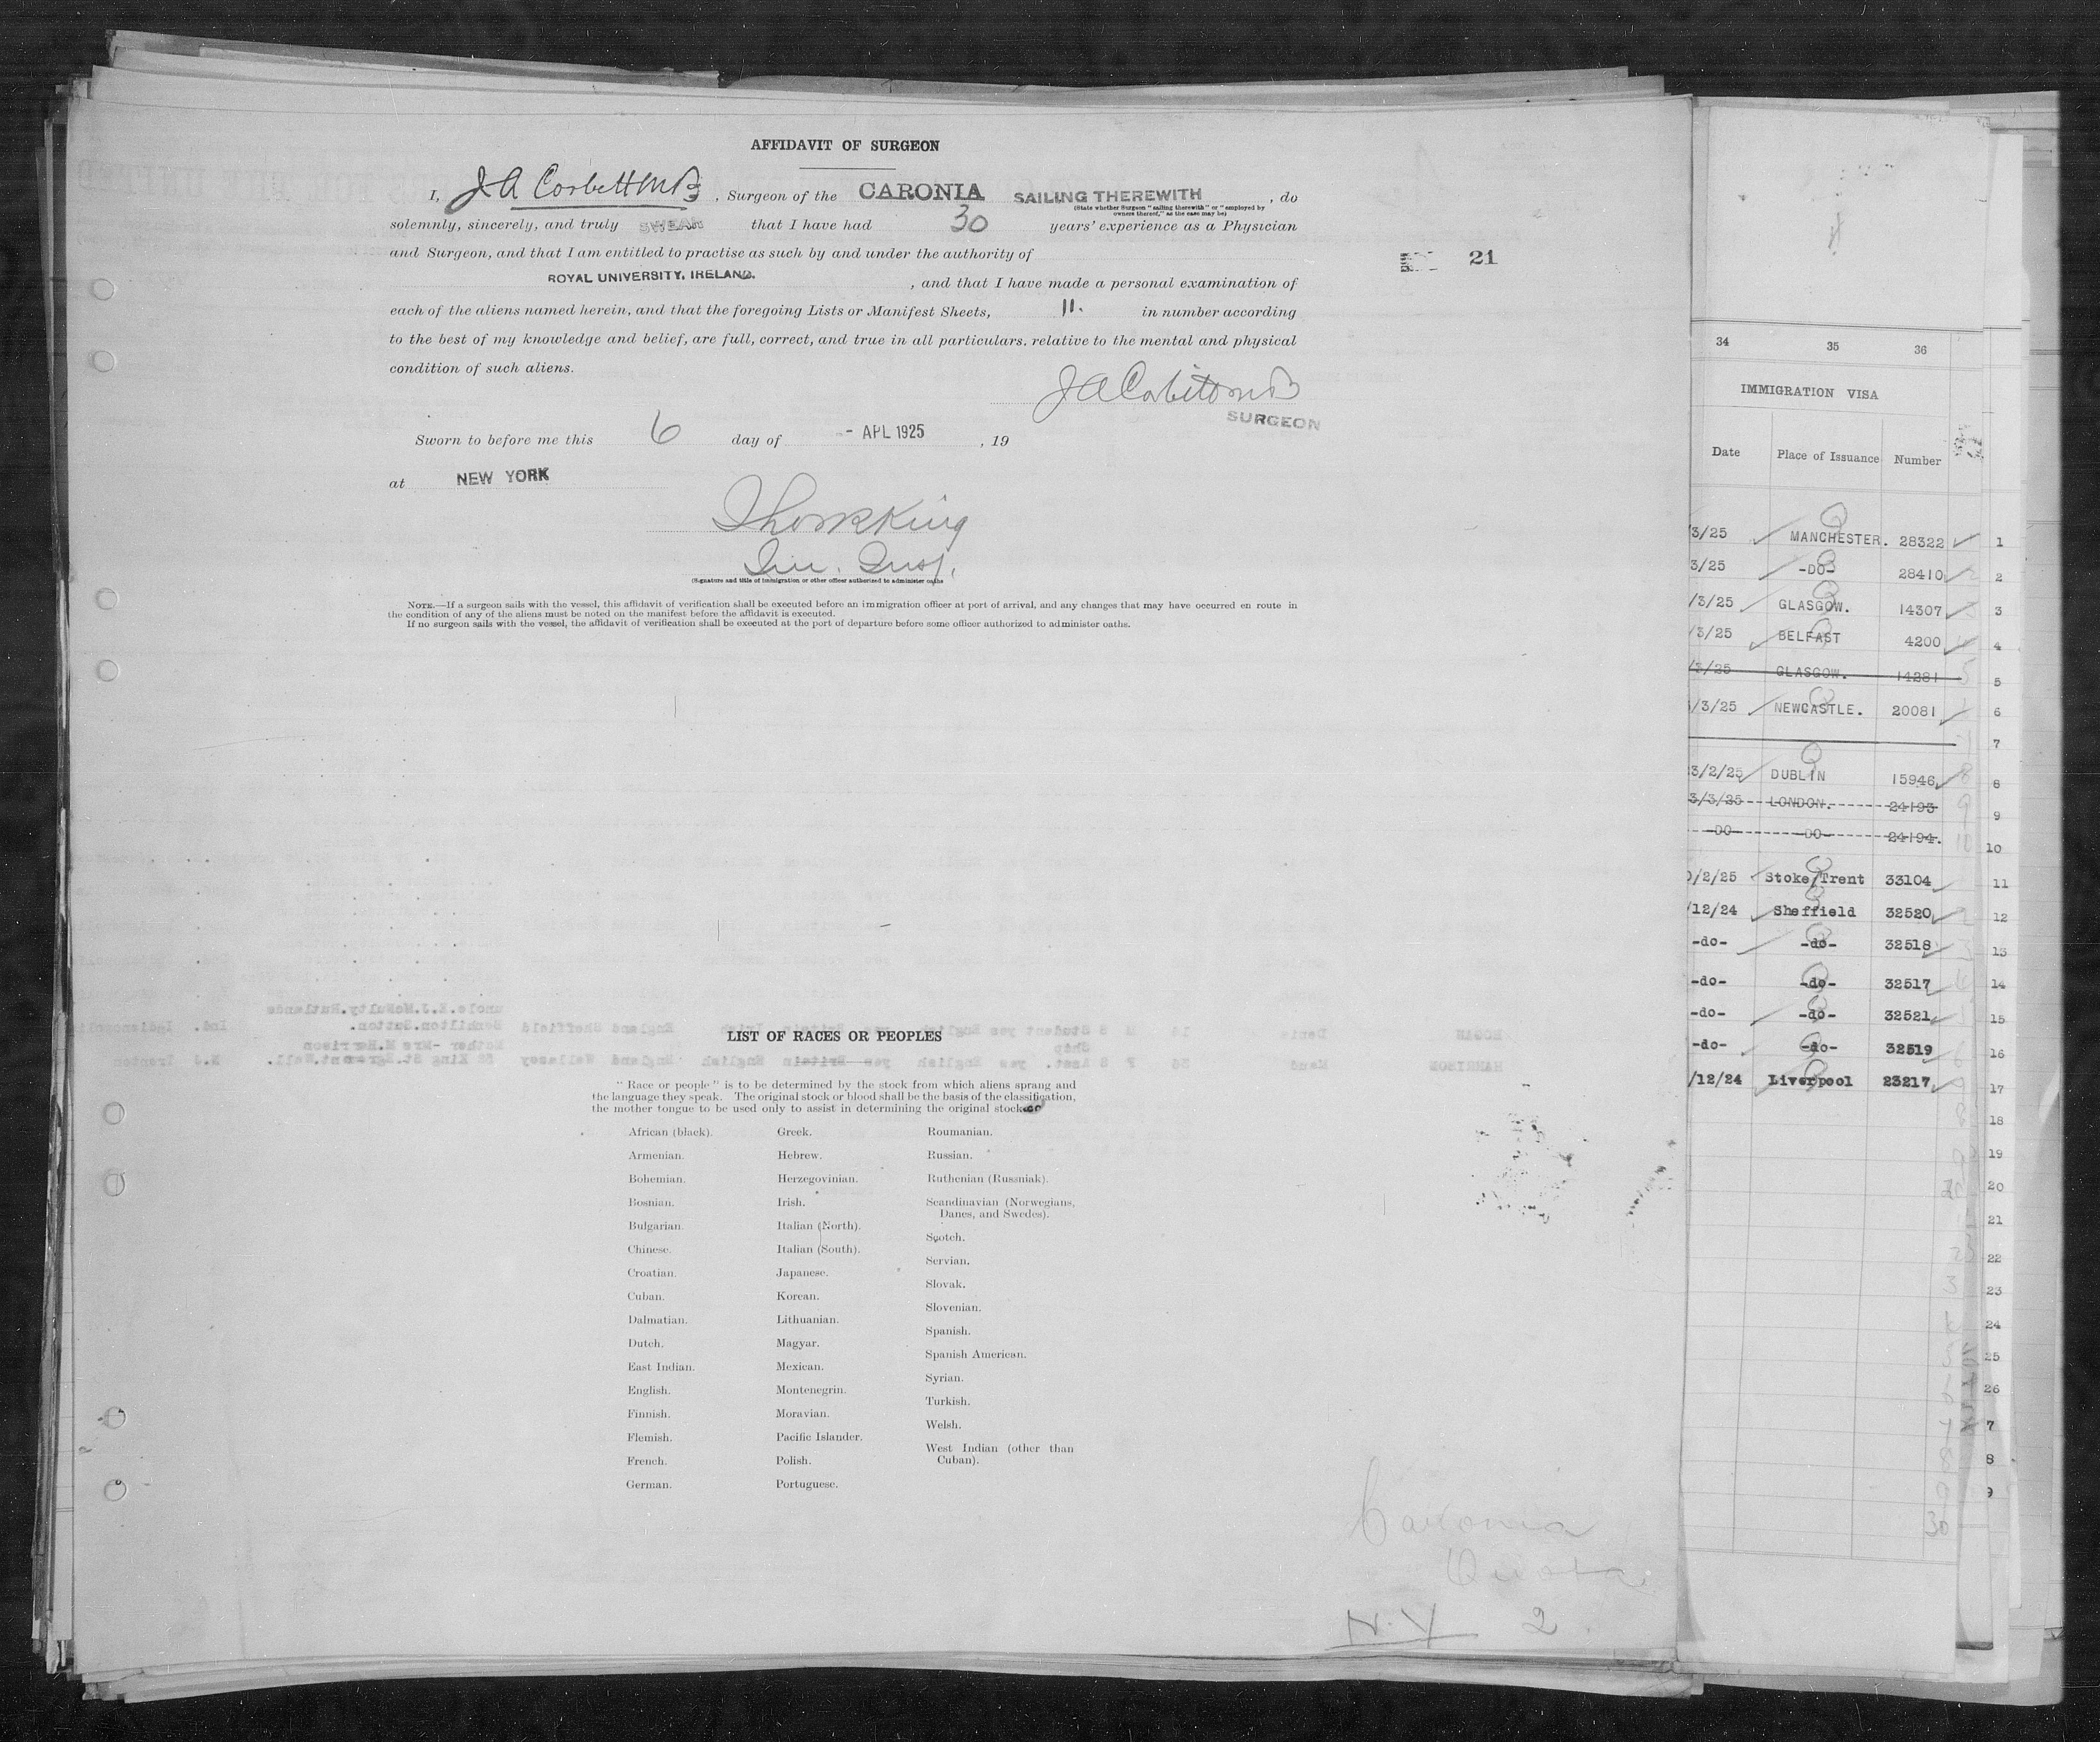 AFFIDAVIT OF SURGEON
I, J A Corbett M B, Surgeon of the CARONIA SAILING THEREWITH, do
(State whether Surgeon "sailing therewith" or "employed by
owners thereof," as the case may be)
solemnly, sincerely, and truly SWEAR that I have had 30 years' experience as a Physician
and Surgeon, and that I am entitled to practise as such by and under the authority of
ROYAL UNIVERSITY, IRELAND. , and that I have made a personal examination of
each of the aliens named herein, and that the foregoing Lists or Manifest Sheets, 11. in number according
to the best of my knowledge and belief, are full, correct, and true in all particulars, relative to the mental and physical
condition of such aliens.
21
J A Corbett M B
SURGEON
Sworn to before me this 6 day of - APL 1925, 19
at NEW YORK
Thos R King
Im. Insp.
(Signature and title of immigration or other officer authorized to administer oaths
NOTE.—If a surgeon sails with the vessel, this affidavit of verification shall be executed before an immigration officer at port of arrival, and any changes that may have occurred en route in
the condition of any of the aliens must be noted on the manifest before the affidavit is executed.
If no surgeon sails with the vessel, the affidavit of verification shall be executed at the port of departure before some officer authorized to administer oaths.
LIST OF RACES OR PEOPLES
"Race or people" is to be determined by the stock from which aliens sprang and
the language they speak. The original stock or blood shall be the basis of the classification,
the mother tongue to be used only to assist in determining the original stock.
African (black).
Armenian.
Bohemian.
Bosnian.
Bulgarian.
Chinese.
Croatian.
Cuban.
Dalmatian.
Dutch.
East Indian.
English.
Finnish.
Flemish.
French.
German.
Greek.
Hebrew.
Herzegovinian.
Irish.
Italian (North).
Italian (South).
Japanese.
Korean.
Lithuanian.
Magyar.
Mexican.
Montenegrin.
Moravian.
Pacific Islander.
Polish.
Portuguese.
Roumanian.
Russian.
Ruthenian (Russniak).
Scandinavian (Norwegians,
Danes, and Swedes).
Scotch.
Servian.
Slovak.
Slovenian.
Spanish.
Spanish American.
Syrian.
Turkish.
Welsh.
West Indian (other than
Cuban).
Caronia
Quota
N.Y 2
34 35 36
IMMIGRATION VISA
Date Place of Issuance Number
/3/25 MANCHESTER. 28322 1
3/25 -DO- 28410 2
/3/25 GLASGOW. 14307 3
/3/25 BELFAST 4200 4
/3/25 GLASGOW. 14281 5
/3/25 NEWCASTLE. 20081 6
7
3/2/25 DUBLIN 15946 8
3/3/25 LONDON. 24193 9
-DO- -DO- 24194. 10
/2/25 Stoke/Trent 33104 11
/12/24 Sheffield 32520 12
-do- -do- 32518 13
-do- -do- 32517 14
-do- -do- 32521 15
-do- -do- 32519 16
/12/24 Liverpool 23217 17
18
19
20
21
22
23
24
25
26
7
8
9
30